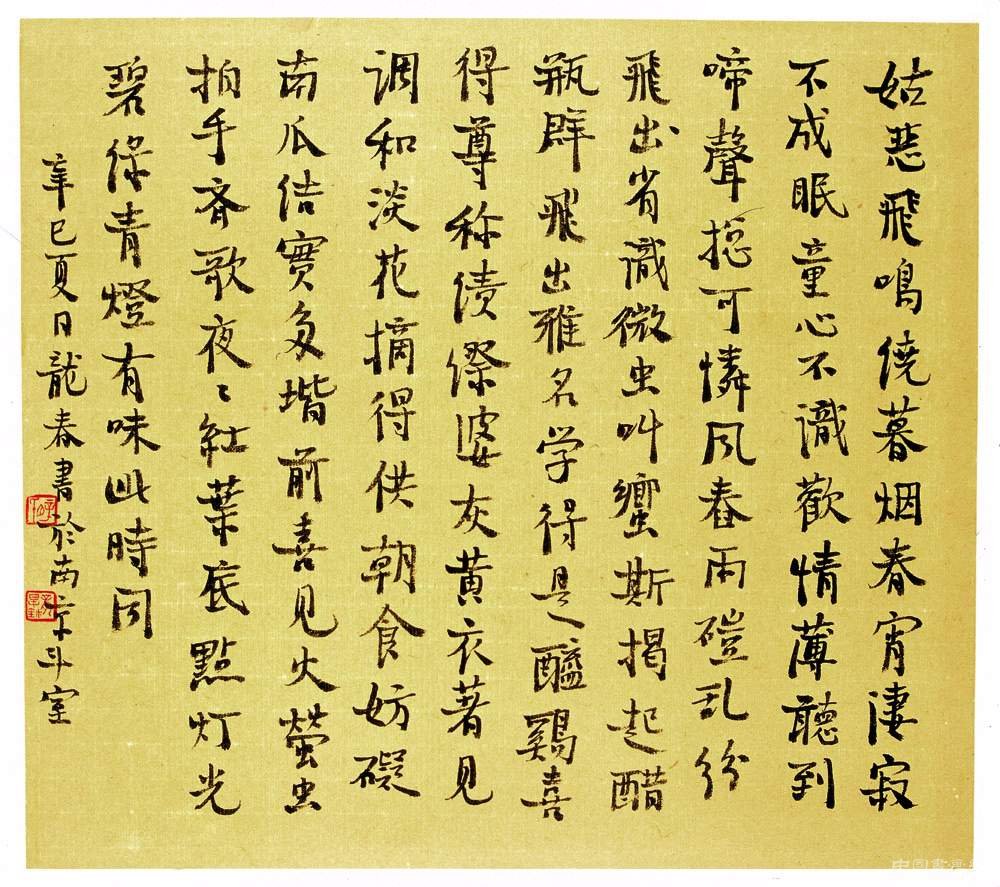 姑恶飛鳴绕暮烟春宵淒寂
不成眠童心不識歡情薄聽到
啼聲揔可憐風舂雨磑乱纷
飛出省識微虫叫蠻斯揭起醋
瓶群飛出雅名学得是醯鷄喜
得尊称绩縩婆灰黄衣著見
调和淡花摘得供朝食妨礙
南瓜结實多堦前喜見火螢虫
拍手斉歌夜〻红葉底點灯光
碧绿青燈有味此時同
辛巳夏日龍春書於南京斗室
中國書畫